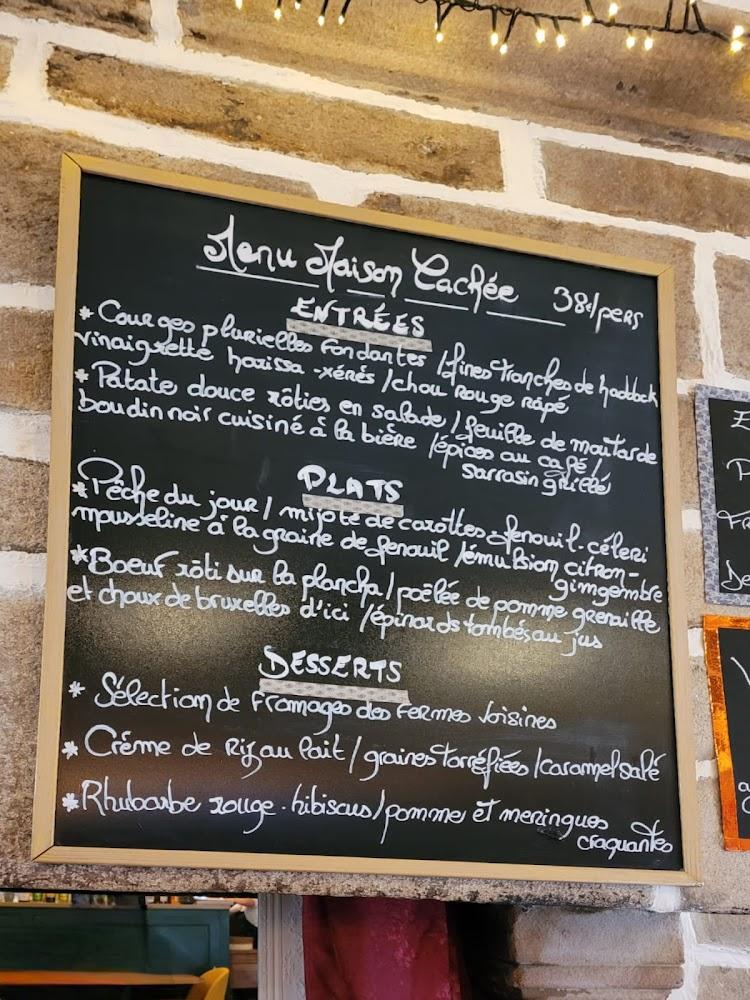 Menu Maison Cachée 38€/pers
ENTRÉES
* Courges plurielles fondantes / fines tranches de haddock
vinaigrette harissa-xérès / chou rouge râpé
* Patate douce rôties en salade / feuille de moutarde
boudin noir cuisiné à la bière / épices au café /
sarrasin grillé
PLATS
* Pêche du jour / mijoté de carottes fenouil-céleri
mousseline à la graine de fenouil / émulsion citron-
gimgembre
* Boeuf rôti sur la plancha / poêlée de pomme grenaille
et choux de bruxelles d'ici / épinards tombés au jus
DESSERTS
* Sélection de Fromages des Fermes Voisines
* Crème de Riz au lait / graines torréfiées / caramel salé
* Rhubarbe rouge-hibiscus / pomme et meringues
craquantes